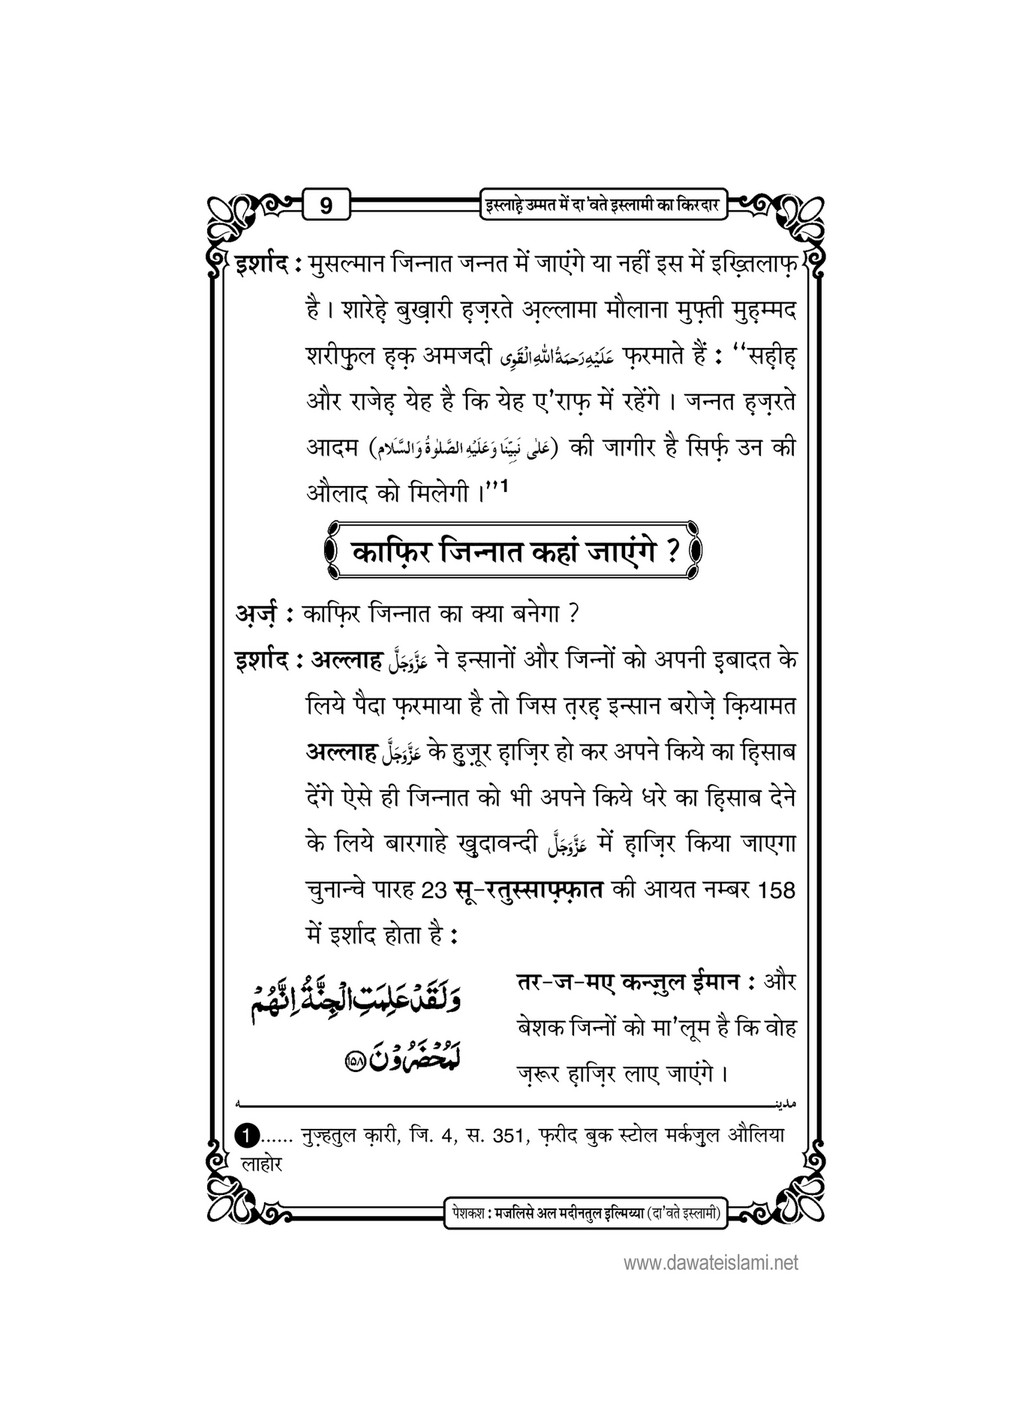 9
इस्लाहे़ उम्मत में दा'वते इस्लामी का किरदार
इर्शाद : मुसल्मान जिन्नात जन्नत में जाएंगे या नहीं इस में इख़्तिलाफ़
है । शारेह़े बुख़ारी ह़ज़रते अ़ल्लामा मौलाना मुफ़्ती मुह़म्मद
शरीफ़ुल ह़क़ अमजदी عَلَيْهِ رَحْمَةُ اللهِ الْقَوِى फ़रमाते हैं : ‘‘सह़ीह़
और राजेह़ येह है कि येह ए'राफ़ में रहेंगे । जन्नत ह़ज़रते
आदम (عَلٰى نَبِيِّنَا وَعَلَيْهِ الصَّلٰوةُ وَالسَّلَام) की जागीर है सिर्फ़ उन की
औलाद को मिलेगी ।’’1
काफ़िर जिन्नात कहां जाएंगे ?
अ़र्ज़ : काफ़िर जिन्नात का क्या बनेगा ?
इर्शाद : अल्लाह عَزَّوَجَلَّ ने इन्सानों और जिन्नों को अपनी इ़बादत के
लिये पैदा फ़रमाया है तो जिस त़रह़ इन्सान बरोज़े क़ियामत
अल्लाह عَزَّوَجَلَّ के हु़ज़ूर ह़ाज़िर हो कर अपने किये का ह़िसाब
देंगे ऐसे ही जिन्नात को भी अपने किये धरे का ह़िसाब देने
के लिये बारगाहे ख़ुदावन्दी عَزَّوَجَلَّ में ह़ाज़िर किया जाएगा
चुनान्चे पारह 23 सू-रतुस्साफ़्फ़ात की आयत नम्बर 158
में इर्शाद होता है :
وَلَقَدْ عَلِمَتِ الْجِنَّةُ اِنَّهُمْ
لَمُحْضَرُوْنَ ﴿١٥٨﴾
तर-ज-मए कन्ज़ुल ईमान : और
बेशक जिन्नों को मा'लूम है कि वोह
ज़रूर ह़ाज़िर लाए जाएंगे ।
مدينه
1...... नुज़्हतुल क़ारी, जि. 4, स. 351, फ़रीद बुक स्टोल मर्कज़ुल औलिया
लाहोर
पेशकश : मजलिसे अल मदीनतुल इ़ल्मिय्या (दा'वते इस्लामी)
www.dawateislami.net